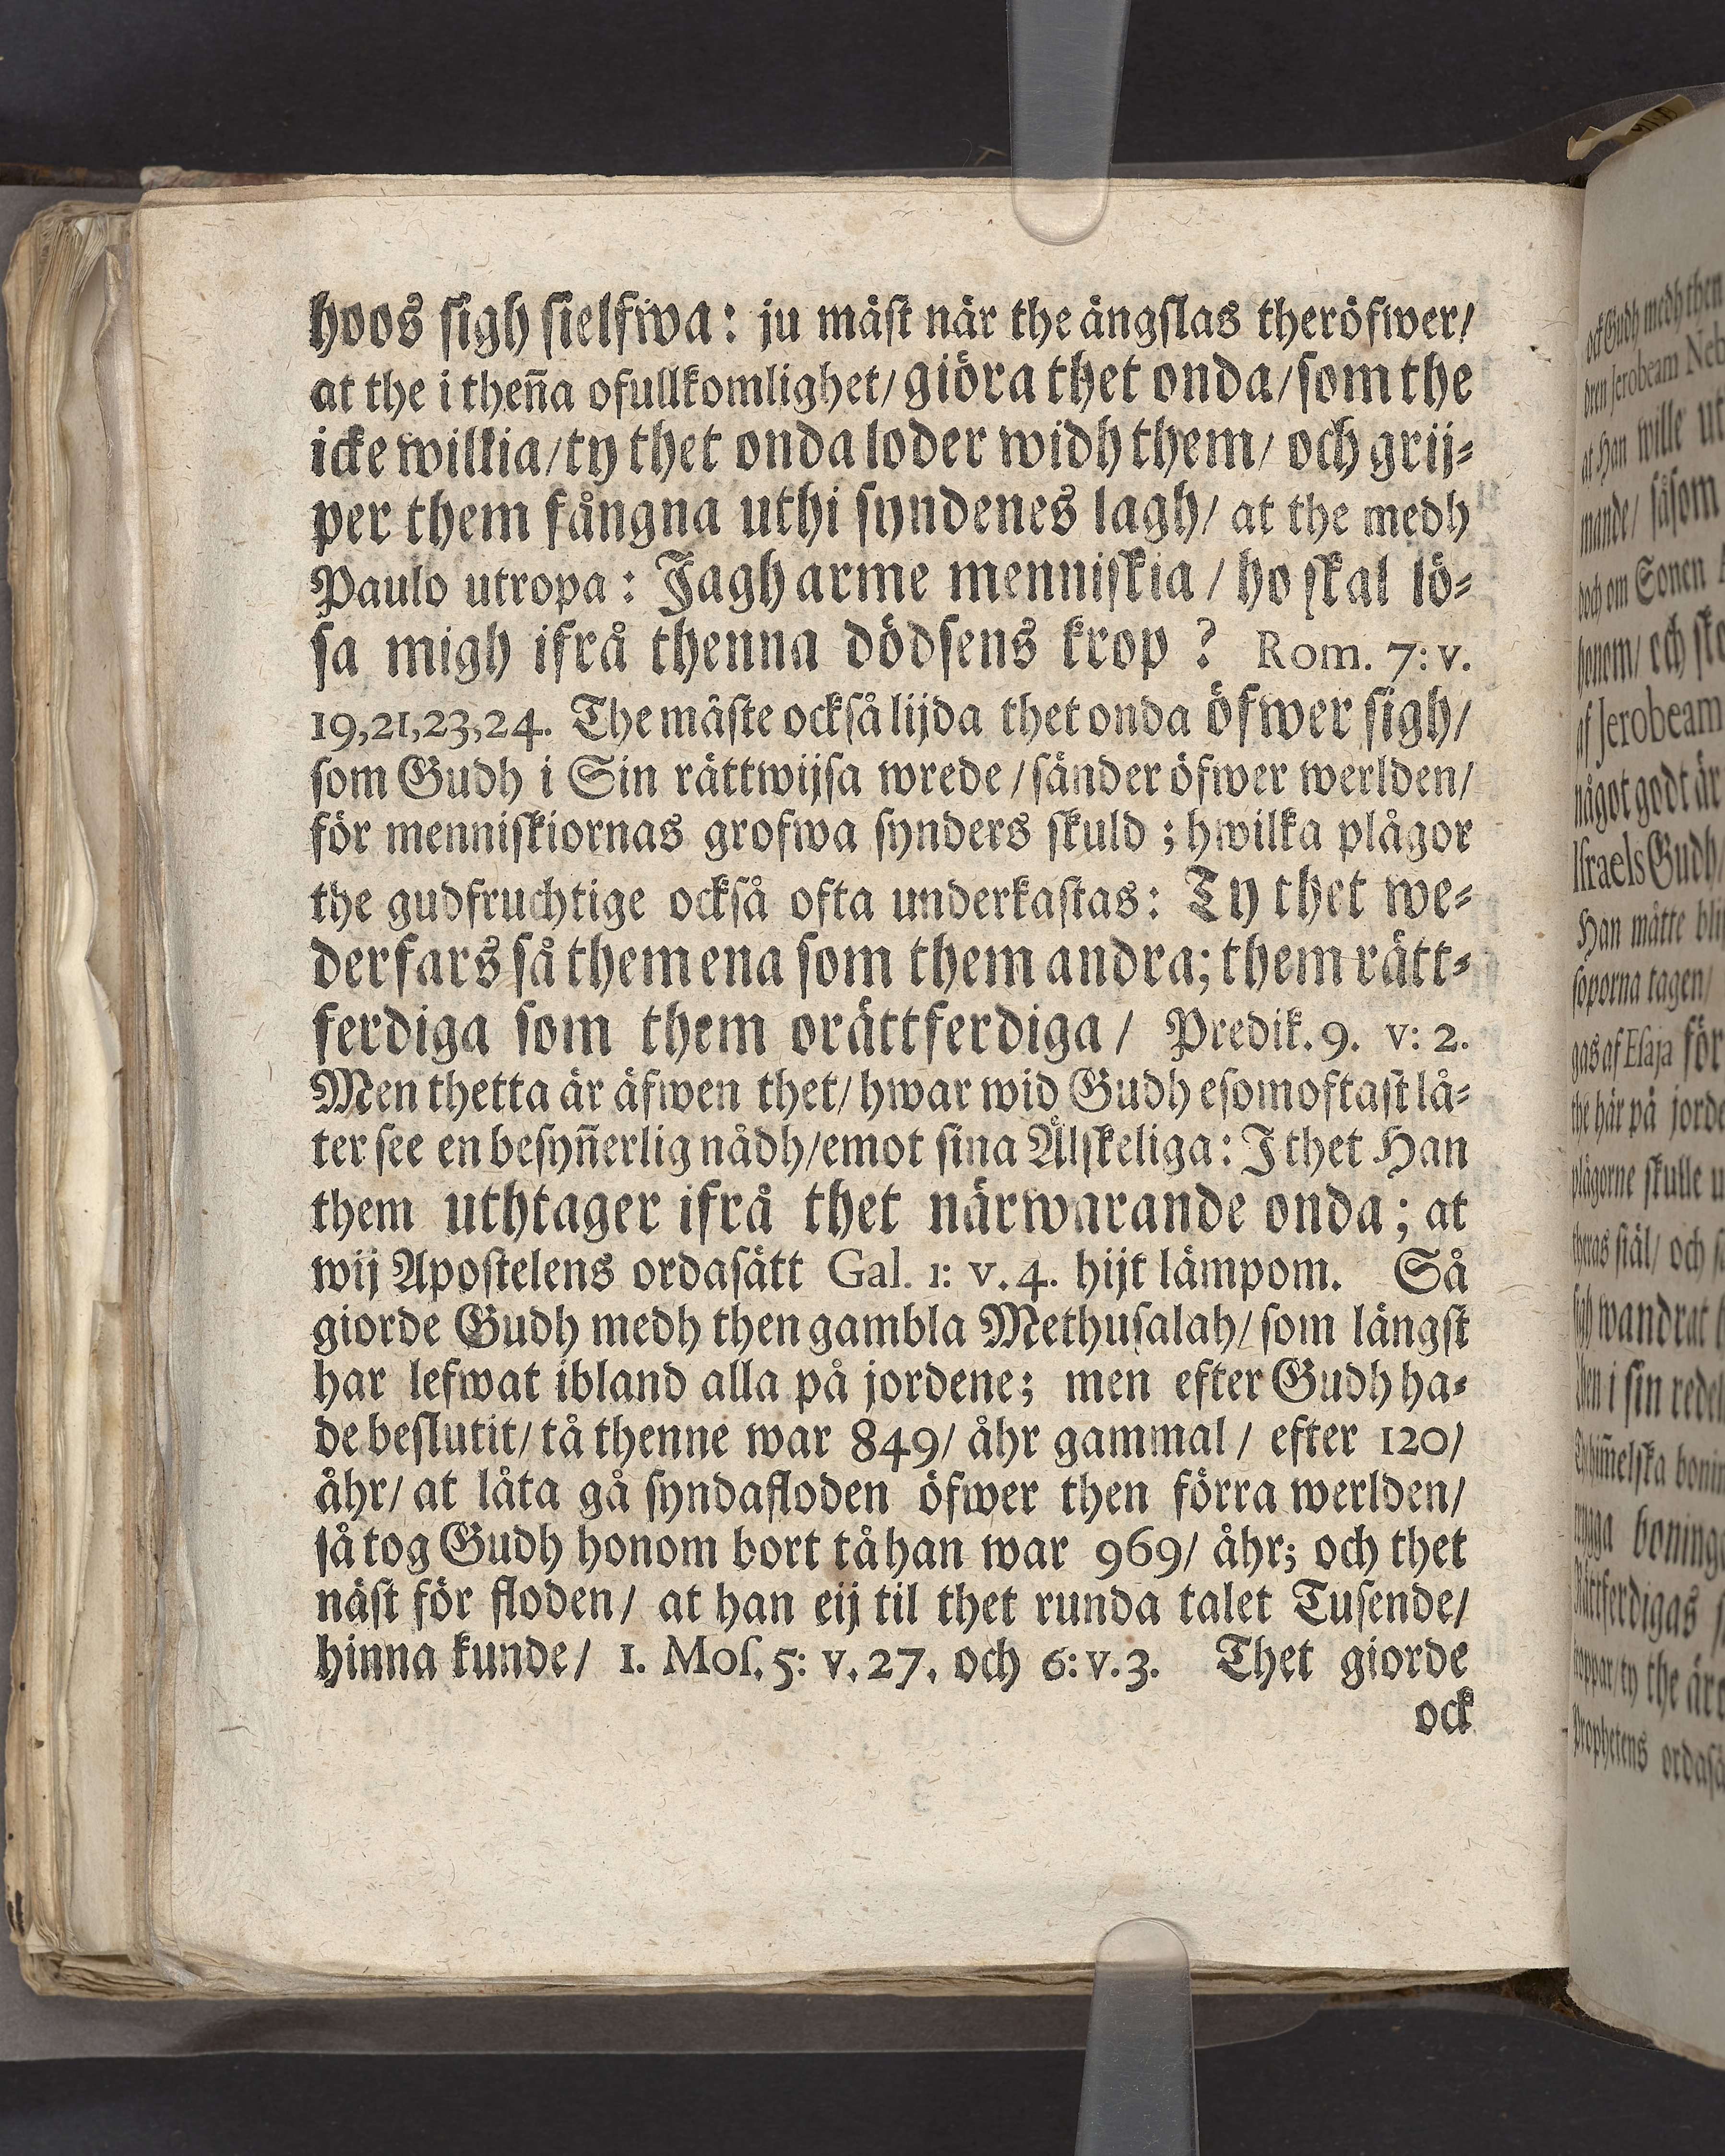 hoos sigh sielfwa: ju mäst när the ängslas theröfwer/
at the i theña ofullkomlighet/ giöra thet onda/ som the
icke willia/ ty thet onda loder widh them/ och grij⸗
per them fångna uthi syndenes lagh/ at the medh
Paulo utropa: Jagh arme menniskia / ho skal lö⸗
sa migh ifrå thenna dödsens krop ? Rom. 7: v.
19,21,23,24. The mäste också lijda thet onda öfwer sigh/
som Gudh i Sin rättwijsa wrede / sänder öfwer werlden/
för menniskiornas grofwa synders skuld ; hwilka plågor
the gudfruchtige också ofta underkastas: Ty thet we⸗
derfars så them ena som them andra; them rätt⸗
ferdiga som them orättferdiga / Predik. 9. v: 2.
Men thetta är äfwen thet/ hwar wid Gudh esomoftast lå⸗
ter see en besyñerlig nådh/emot sina Älskeliga: J thet Han
them uthtager ifrå thet närwarande onda; at
wij Apostelens ordasätt Gal. 1: v. 4. hijt lämpom. Så
giorde Gudh medh then gambla Methusalah/ som längst
har lefwat ibland alla på jordene; men efter Gudh ha⸗
de beslutit/ tå thenne war 849/ åhr gammal / efter 120/
åhr/ at låta gå syndafloden öfwer then förra werlden/
så tog Gudh honom bort tå han war 969/ åhr; och thet
näst för floden/ at han eij til thet runda talet Tusende/
hinna kunde/ 1. Mos. 5: v. 27. och 6: v. 3. Thet giorde
ock
ock Gudh medh then
Jerobeam
at Han wille ut
mande/ såsom
doch om Sonen
honom/ och
af Jerobeam
något godt är
Israels Gudh/
Han måtte
soporna tagen/
gas af Esaja för
the här på
plågorne skulle
theras siäl/ och
wandrat
i sin
Prophetens